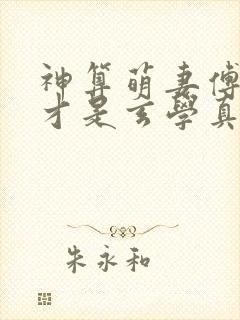 神算萌妻傅
才是玄學真
朱永和